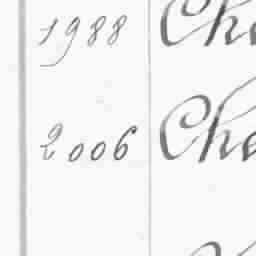 1988 Che
2006 Che